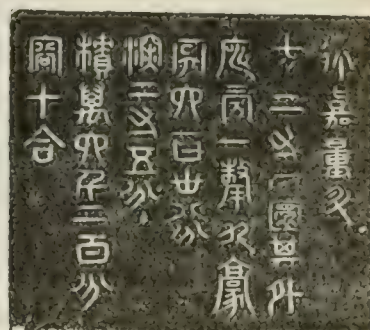 律嘉量升
方二寸而圜其外
庣旁一氂九豪
冥六百卌八分
深二寸五分
積萬六千二百分
容十合